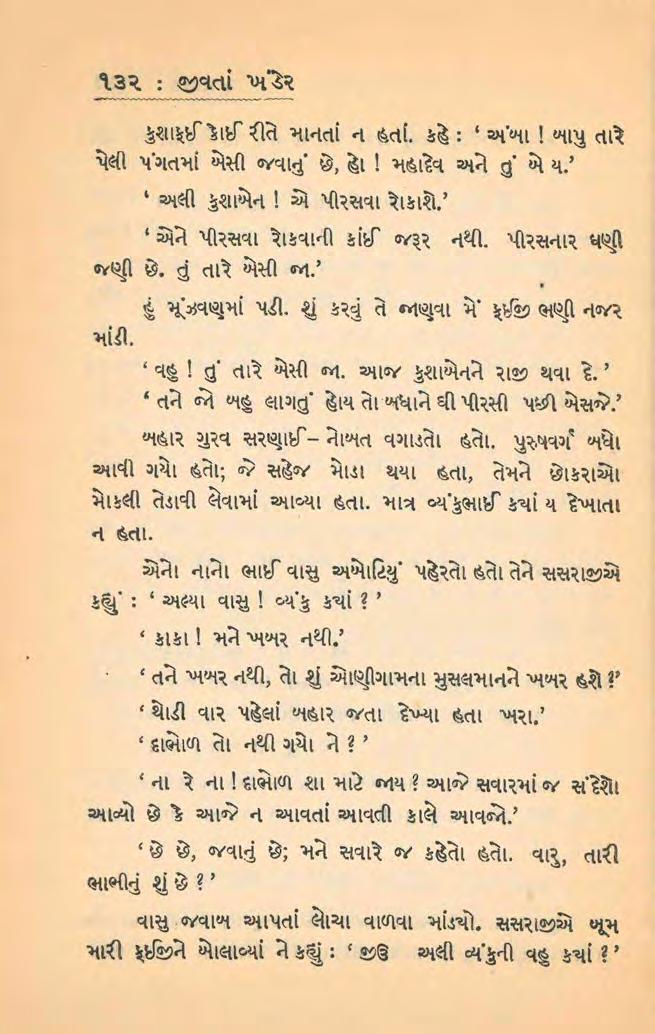 ૧૩૨ : જીવતાં ખંડેર
કુશાફઈ કોઈ રીતે માનતાં ન હતાં. કહે : ‘ અંબા ! બાપુ તારે
પેલી પંગતમાં બેસી જવાનું છે, હો ! મહાદેવ અને તું બે ય.’
‘ અલી કુશાબેન ! એ પીરસવા રોકાશે.’
‘ એને પીરસવા રોકવાની કાંઈ જરૂર નથી. પીરસનાર ઘણી
જણી છે. તું તારે બેસી જા.’
હું મૂંઝવણમાં પડી. શું કરવું તે જાણવા મેં ફઈજી ભણી નજર
માંડી.
‘ વહુ ! તું તારે બેસી જા. આજ કુશાબેનને રાજી થવા દે. ’
‘ તને જો બહુ લાગતું હોય તો બધાને ઘી પીરસી પછી બેસજે.’
બહાર ગુરવ સરણાઈ – નોબત વગાડતો હતો. પુરુષવર્ગ બધો
આવી ગયો હતો; જે સહેજ મોડા થયા હતા, તેમને છોકરાઓ
મોકલી તેડાવી લેવામાં આવ્યા હતા. માત્ર વ્યંકુભાઈ ક્યાં ય દેખાતા
ન હતા.
એનો નાનો ભાઈ વાસુ અબોટિયું પહેરતો હતો તેને સસરાજીએ
કહ્યું : ‘ અલ્યા વાસુ ! વ્યંકુ ક્યાં ? ’
‘ કાકા ! મને ખબર નથી.’
‘ તને ખબર નથી, તો શું ઓણીગામના મુસલમાનને ખબર હશે ?’
‘ થોડી વાર પહેલાં બહાર જતા દેખ્યા હતા ખરા.’
‘ દાભોળ તો નથી ગયો ને ? ’
‘ ના રે ના ! દાભોળ શા માટે જાય ? આજે સવારમાં જ સંદેશો
આવ્યો છે કે આજે ન આવતાં આવતી કાલે આવજો.’
‘ છે છે, જવાનું છે; મને સવારે જ કહેતો હતો. વારુ, તારી
ભાભીનું શું છે ? ’
વાસુ જવાબ આપતાં લોચા વાળવા માંડ્યો. સસરાજીએ બૂમ
મારી ફઈજીને બોલાવ્યાં ને કહ્યું : ‘ જીઉ અલી વ્યંકુની વહુ ક્યાં ? ’